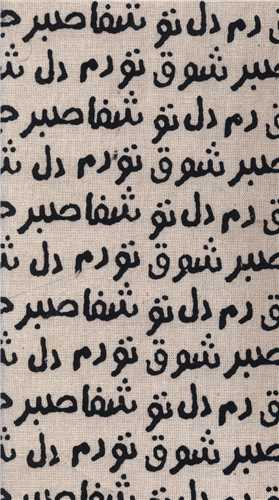 دم دل تو شفا صبر
صبر شوق تو دم دل
دم دل تو شفا صبر
صبر شوق تو دم دل
دم دل تو شفا صبر
صبر شوق تو دم دل
دم دل تو شفا صبر
صبر شوق تو دم دل
دم دل تو شفا صبر
صبر شوق تو دم دل